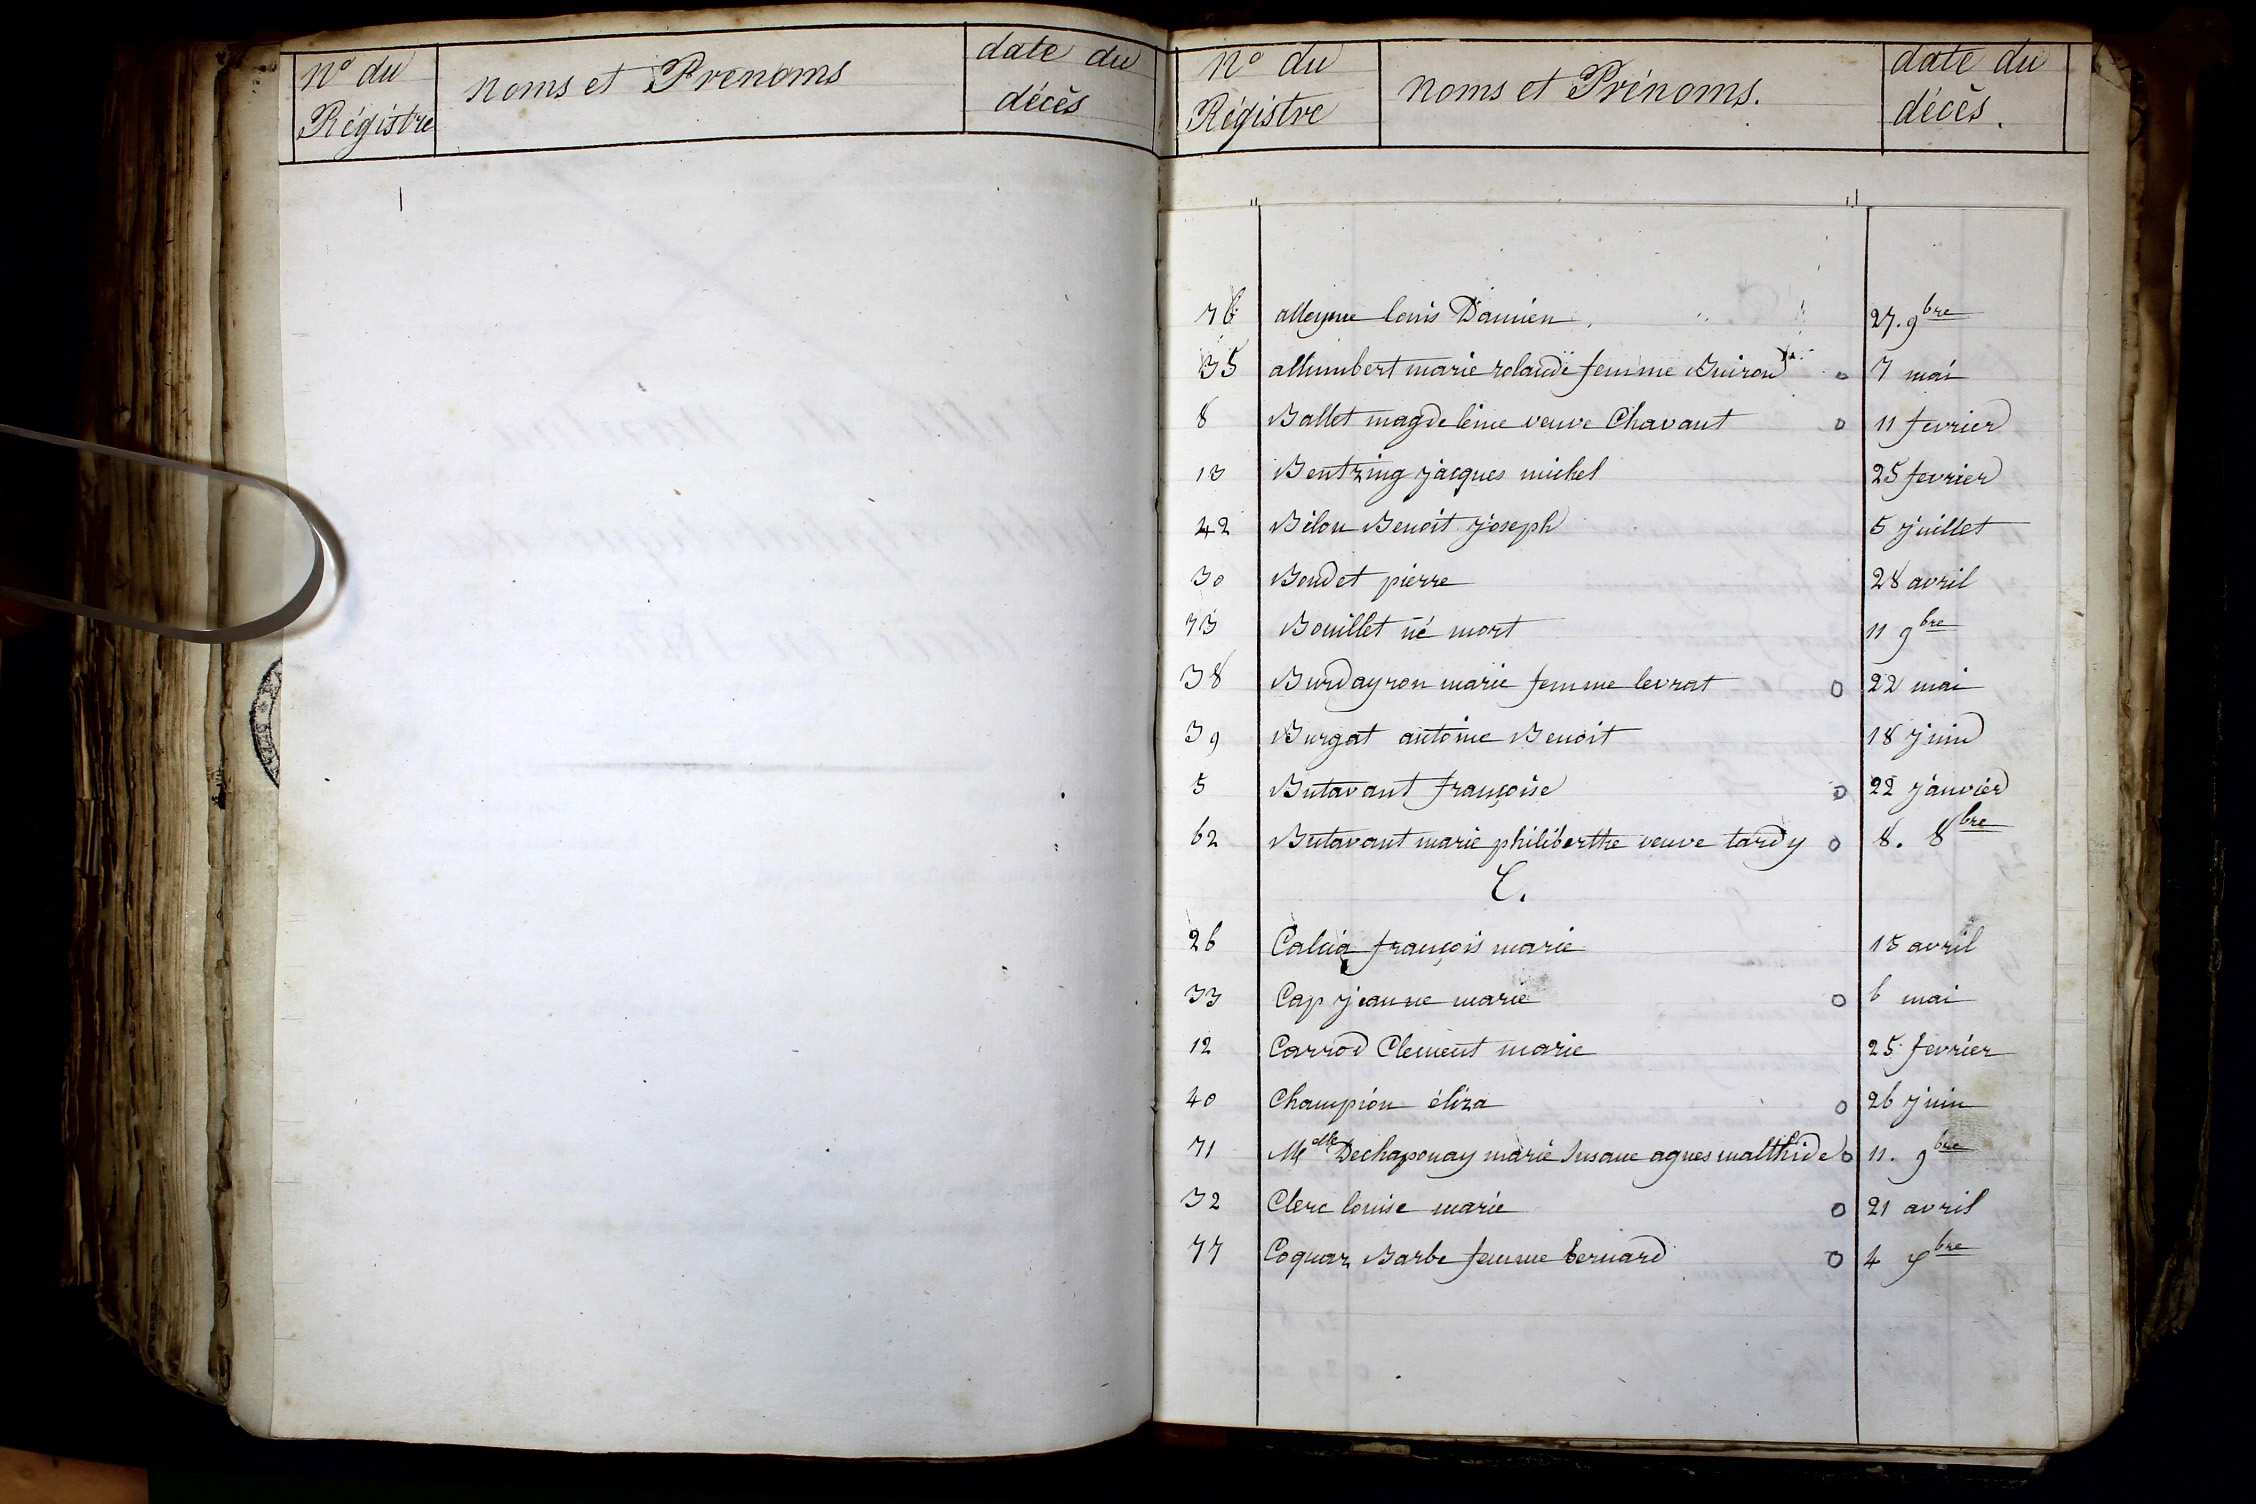 N° du Régistre | noms et Prenoms | date du décès
N° du Régistre | noms et Prénoms. | date du décès.
76 | alleyne louis Damien. | 27. 9bre
35 | allumbert marie rolaude femme Buiron o | 7 mai
8 | Ballet magdeleine veuve Chavant o | 11 fevrier
13 | Bentzing jacques michel | 25 fevrier
42 | Bilon Benoit joseph | 5 juillet
30 | Boudet pierre | 28 avril
73 | Bouillet né mort | 11 9bre
38 | Burdayron marie femme levrat o | 22 mai
39 | Burgat antoine Benoit | 18 juin
5 | Butavant françoise o | 22 janvier
62 | Butavant marie philiberthe veuve tardy o | 8. 8bre
C.
26 | Calcia françois marie | 15 avril
33 | Cap jeanne marie o | 6 mai
12 | Carrod Clement marie | 25 fevrier
40 | Champion éliza o | 26 juin
71 | Melle Dechaponay marie Susane agnes malthide o | 11. 9bre
32 | Clerc louise marie o | 21 avril
77 | Coquaz Barbe femme bernard o | 4 Xbre